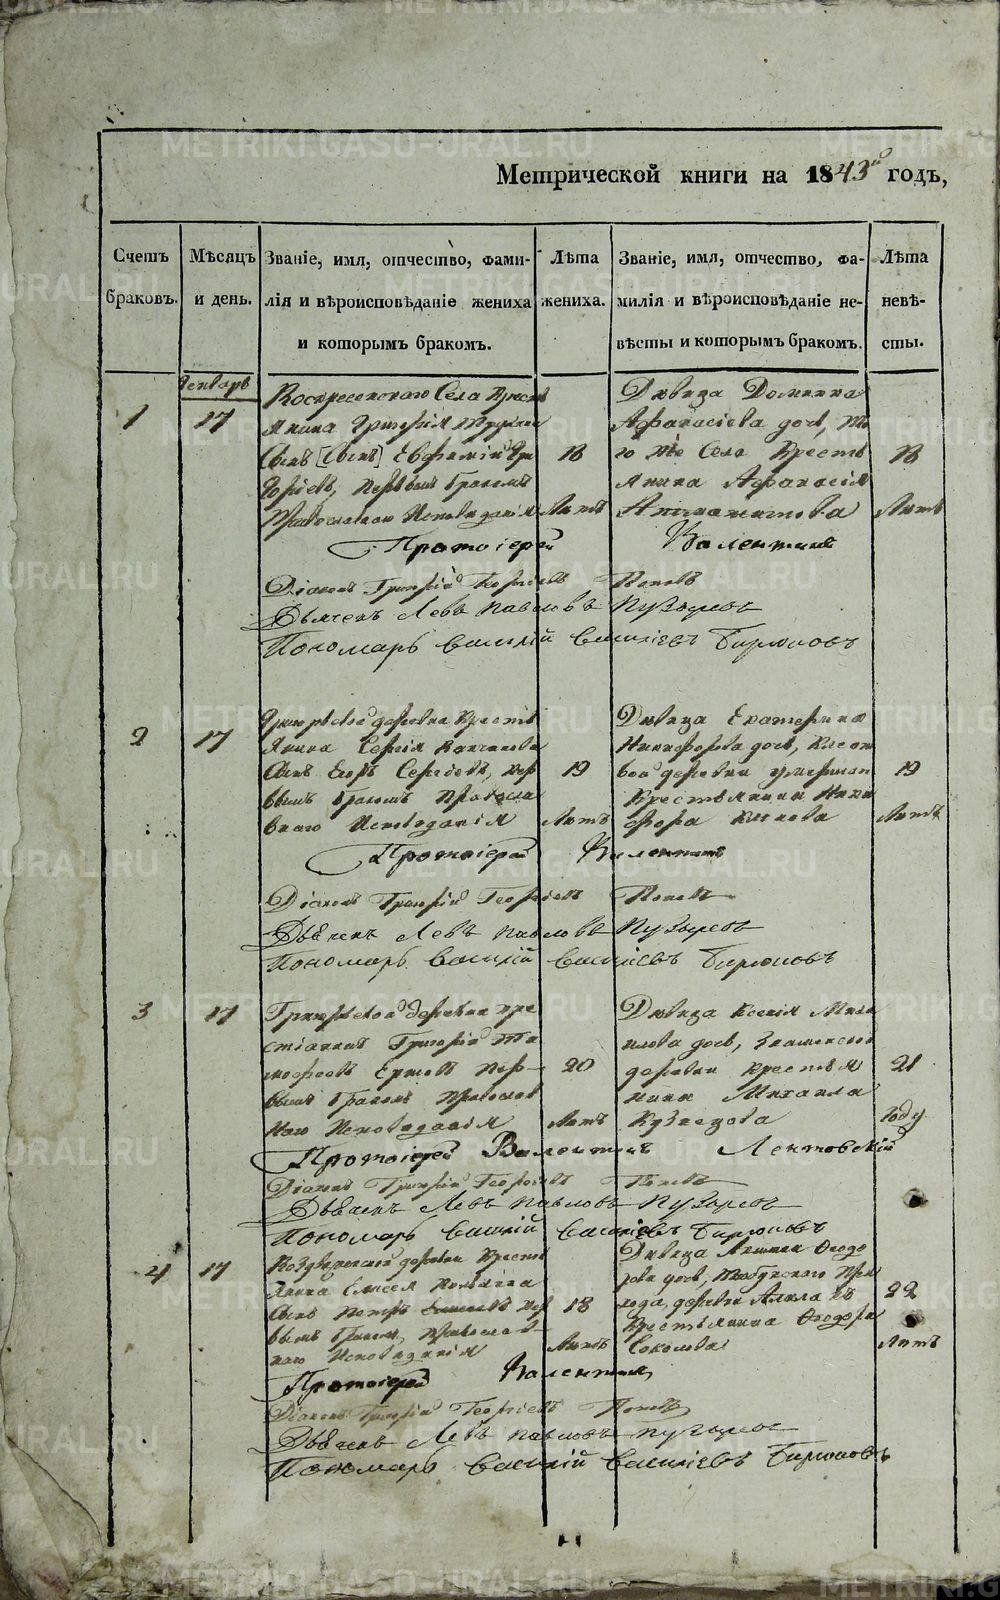 Метрической книги на 1843й годъ,
Счетъ браковъ.
Мѣсяцъ и день.
Званіе, имя, отчество, фами-
лія и вѣроисповѣданіе жениха
и которымъ бракомъ.
Лѣта жениха.
Званіе, имя, отчество, фа-
милія и вѣроисповѣданіе не-
вѣсты и которымъ бракомъ.
Лѣта невѣ-
сты.
Генварь
1
17
Воскресенскаго Села Кресть
янина Григорія
Сынъ [Сынъ] Евфимій Гри
горьевъ, первымъ бракомъ
Православнаго Исповеданія
18
Лѣтъ
Дѣвица Домника
Афанасіева дочь, то
го же Села Кресть
янина Афанасія
18
Лѣтъ
Протоіерей Валентинъ
Діаконъ Григорій Георгіевъ Поповъ
Дьячекъ Левъ Павловъ Пузыревъ
Пономарь Василій Василіевъ Бирюковъ
2
17
деревни Кресть
янина Сергія
Сынъ Егоръ Сергѣевъ, пер
вымъ бракомъ Правосла
внаго Исповеданія
19
Лѣтъ
Дѣвица Екатерина
Никифорова дочь,
вой деревни умершаго
Крестьянина Ники
фора
19
Лѣтъ
Протоіерей Валентинъ
Діаконъ Григорій Георгіевъ Поповъ
Дьячекъ Левъ Павловъ Пузыревъ
Пономарь Василій Василіевъ Бирюковъ
3
17
деревни кре
стіанинъ Григорій Ти
мофеевъ Ершовъ пер-
вымъ бракомъ Православ
наго Исповеданія
20
Лѣтъ
Дѣвица Ксенія Миха
илова дочь, Знаменской
деревни крестья
нина Михаила
Кузнецова
21
Году
Протоіерей Валентинъ Лентовскій
Діаконъ Григорій Георгіевъ Поповъ
Дьячекъ Левъ Павловъ Пузыревъ
Пономарь Василій Василіевъ Бирюковъ
4
17
деревни Кресть
янина Елисея
Сынъ Петръ Елисеевъ пер
вымъ бракомъ, Православ-
наго Исповеданія
18
Лѣтъ
Дѣвица Ѳеодо
рова дочь, При
хода, деревни
Крестьянина Ѳеодора
Соколова
22
Лѣтъ
Протоіерей Валентинъ
Діаконъ Григорій Георгіевъ Поповъ
Дьячекъ Левъ Павловъ Пузыревъ
Пономарь Василій Василіевъ Бирюковъ
METRIKI.GASO-URAL.RU